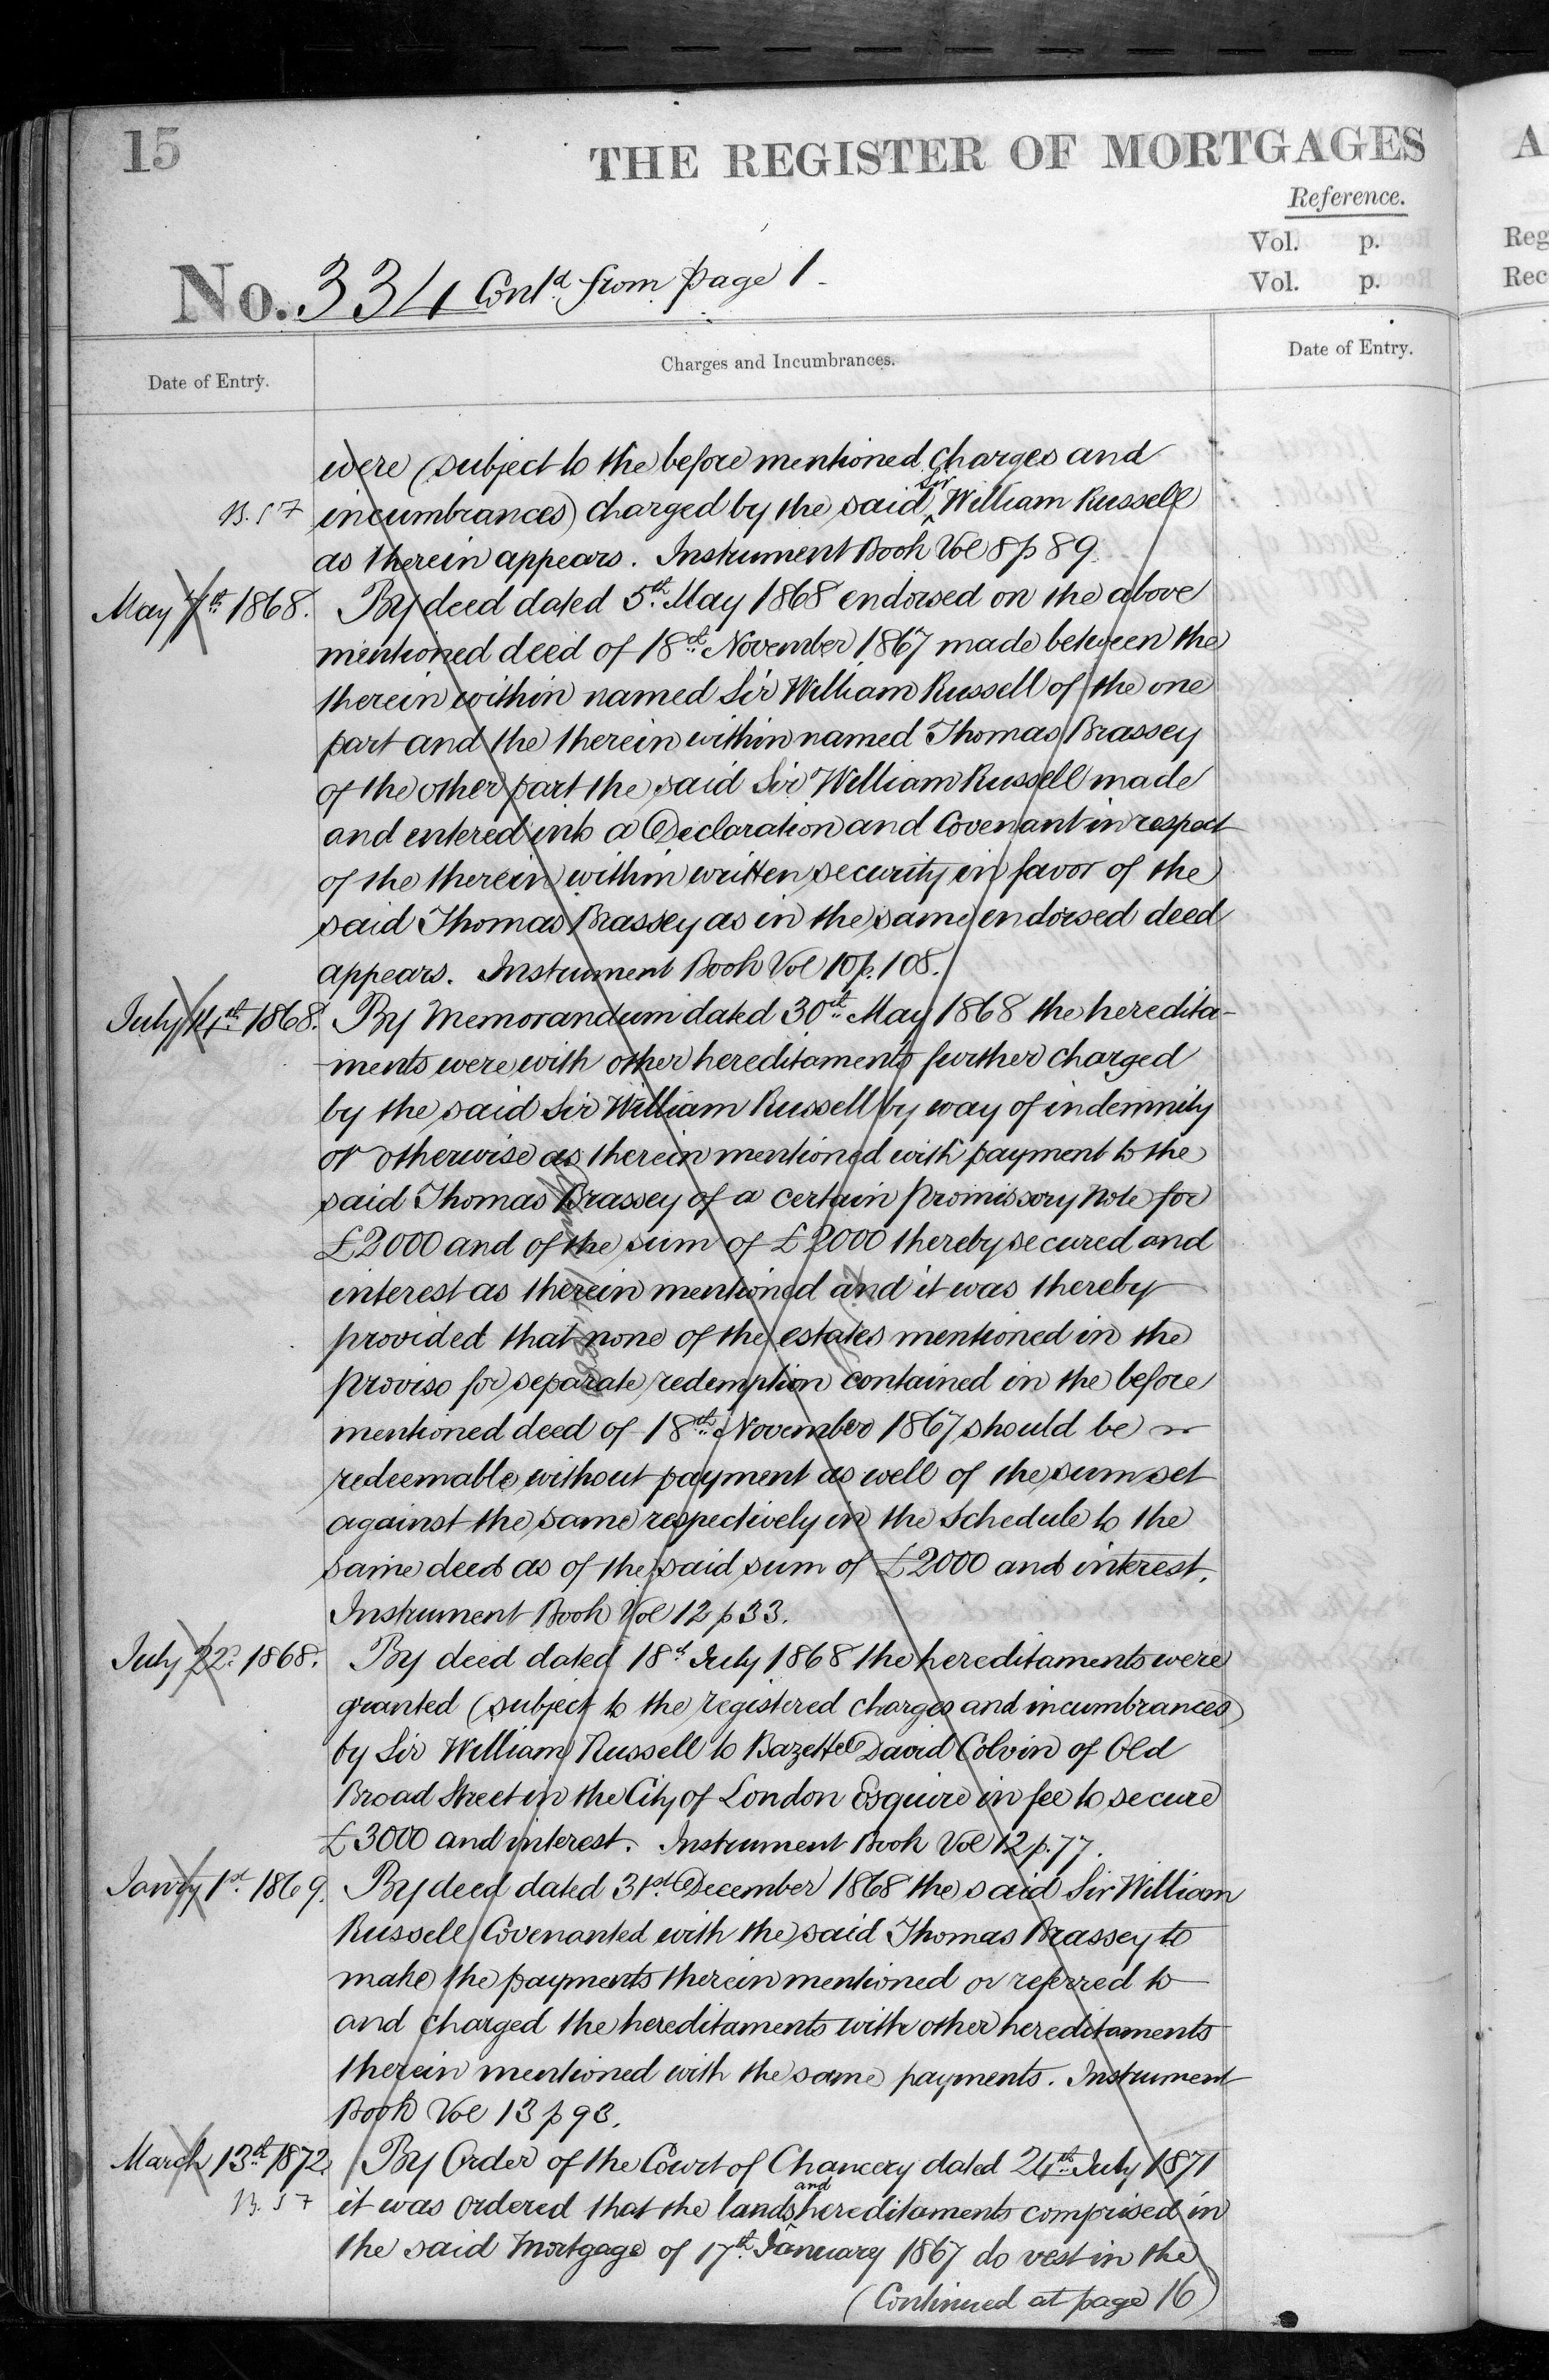 15
THE REGISTER OF MORTGAGES
Reference.
Vol. p.
Vol. p.
No. 334 Contd. from page 1.
Date of Entry.
Charges and Incumbrances.
Date of Entry.
were (subject to the before mentioned charges and
incumbrances) charged by the said Sir William Russell
as therein appears. Instrument Book Vol 8 p 89.
May 7th 1868. By deed dated 5th May 1868 endorsed on the above
mentioned deed of 18th November 1867 made between the
therein within named Sir William Russell of the one
part and the therein within named Thomas Brassey
of the other part the said Sir William Russell made
and entered into a Declaration and Covenant in respect
of the therein within written security in favor of the
said Thomas Brassey as in the same endorsed deed
appears. Instrument Book Vol 10 p. 108.
July 14th 1868. By Memorandum dated 30th May 1868 the heredita-
-ments were with other hereditaments further charged
by the said Sir William Russell by way of indemnity
or otherwise as therein mentioned with payment to the
said Thomas Brassey of a certain Promissory Note for
£2000 and of the sum of £2000 thereby secured and
interest as therein mentioned and it was thereby
provided that none of the estates mentioned in the
proviso for separate redemption contained in the before
mentioned deed of 18th November 1867 should be
redeemable without payment as well of the sum set
against the same respectively in the Schedule to the
same deed as of the said sum of £2000 and interest.
Instrument Book Vol 12 p 33.
July 22d 1868. By deed dated 18th July 1868 the hereditaments were
granted (subject to the registered charges and incumbrances)
by Sir William Russell to Bazett David Colvin of Old
Broad Street in the City of London Esquire in fee to secure
£3000 and interest. Instrument Book Vol 12 p. 77.
Jany 1st 1869. By deed dated 31st December 1868 the said Sir William
Russell Covenanted with the said Thomas Brassey to
make the payments therein mentioned or referred to
and charged the hereditaments with other hereditaments
therein mentioned with the same payments. Instrument
Book Vol 13 p 93.
March 13th 1872. By Order of the Court of Chancery dated 24th July 1871
it was ordered that the lands and hereditaments comprised in
the said Mortgage of 17th January 1867 do vest in the
(Continued at page 16)
A
Reg
Rec